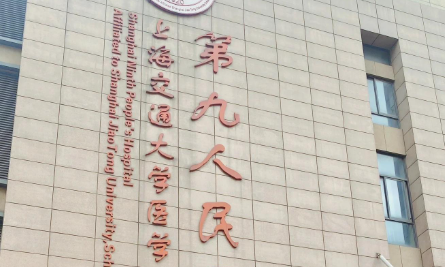 第九人民
上海交通大学医学
Shanghai Ninth People's Hospital
Affiliated to Shanghai JiaoTong University,